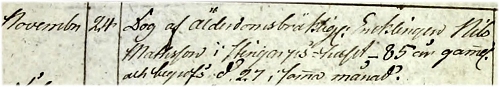 Novembr 24 Dog af Ålderdomsbräklighet Enklingen Nils
Mattisson i 85 år gamel.
och begrofs d. 27 i samma månad.